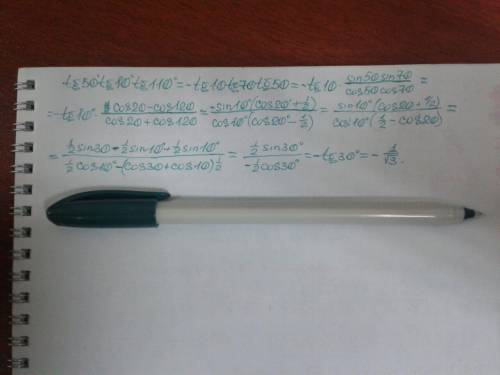 tg50°tg10°tg110° = -tg10tg70tg50 = -tg10 · sin50sin70/cos50cos70 =
= -tg10 · (cos20-cos120)/(cos20+cos120) = -sin10°(cos20°+1/2)/cos10°(cos20°-1/2) = sin10°(cos20+1/2)/cos10°(1/2-cos20) =
= (1/2 sin30 - 1/2 sin10°+1/2 sin10°)/(1/2 cos10°-(cos30+cos10)1/2) = 1/2 sin30°/-1/2 cos30° = -tg30° = -1/√3.